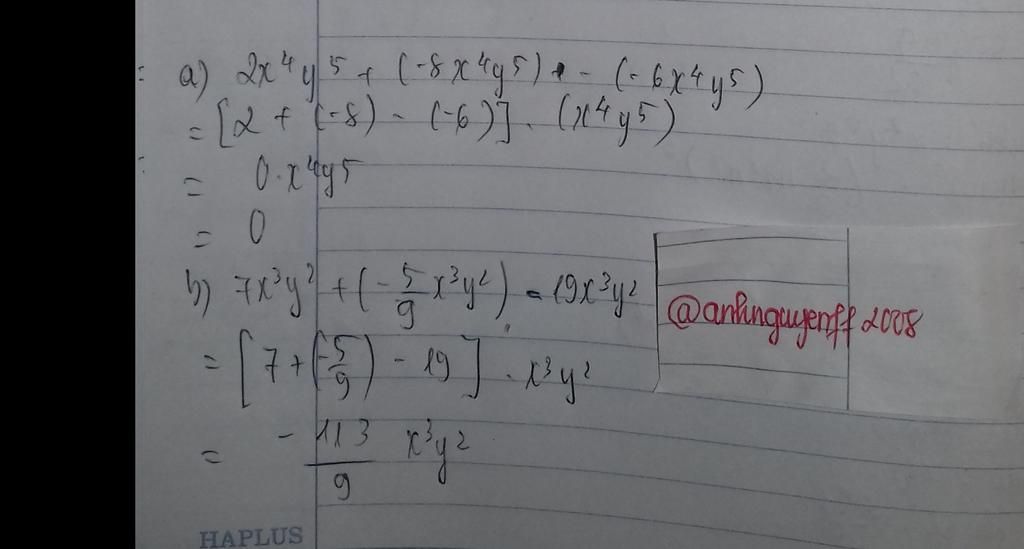 a) 2x⁴y⁵ + (-8x⁴y⁵) - (-6x⁴y⁵)
= [2 + (-8) - (-6)] . (x⁴y⁵)
= 0.x⁴y⁵
= 0
b) 7x³y² + (-5/9x³y²) - 19x³y²
= [7 + (-5/9) - 19] . x³y²
= -113/9 x³y²
@anhnguyenff2008
HAPLUS